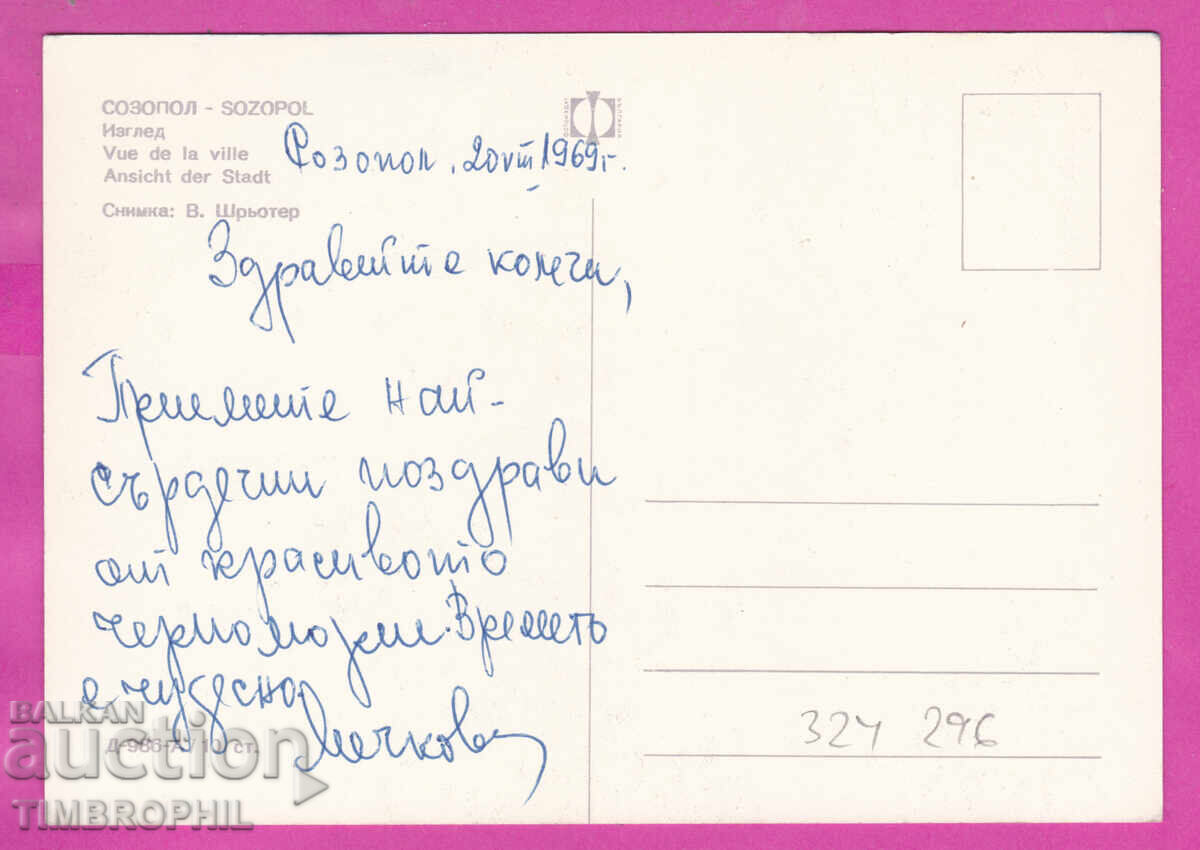 СОЗОПОЛ - SOZOPOL
Изглед
Vue de la ville
Ansicht der Stadt
Снимка: В. Шрьотер
БЪЛГАРИЯ
Созопол, 20 VIII 1969 г.
Здравейте
Приемете най-
сърдечни поздрави
от красивото
черноморие. Времето
е чудесно
Мечкова
Д-986-А / 10 ст.
324 296
BALKAN
auction
TIMBROPHIL